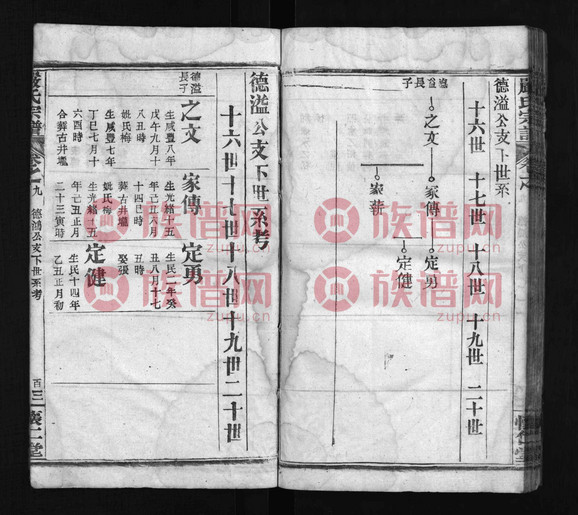 嚴氏宗譜
德溢公支下世系
十六世 十七世 十八世 十九世 二十世
德溢長子
之文
家傳
定勇
定健
家薪
懷仁堂
德溢公支下世系考
十六世十七世十八世十九世二十世
德溢長子
之文
生咸豐八年
戊午九月十
八丑時
姚氏梅
生咸豐七年
丁巳七月十
六酉時
合葬古井壠
家傳
生光緒十五
年己丑八月
十四巳時
葬古井壠
姚氏梅
生光緒十五
年己丑正月
二十三寅時
定勇
生民二年癸
丑八月十七
丑時
娶張
生民十四年
乙丑正月初
定健
嚴氏宗譜
卷之九
德溢公支下世系考
百三
懷仁堂
族谱网
zupu.cn
族谱网
zupu.cn
族谱网
zupu.cn
族谱网
zupu.cn